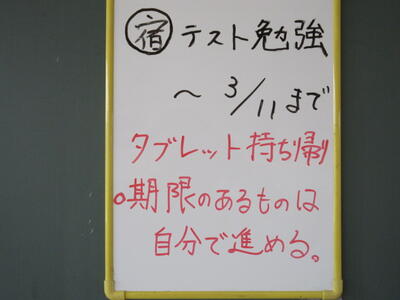 宿 テスト勉強
～3/11まで
タブレット持ち帰り
○期限のあるものは
自分で進める。